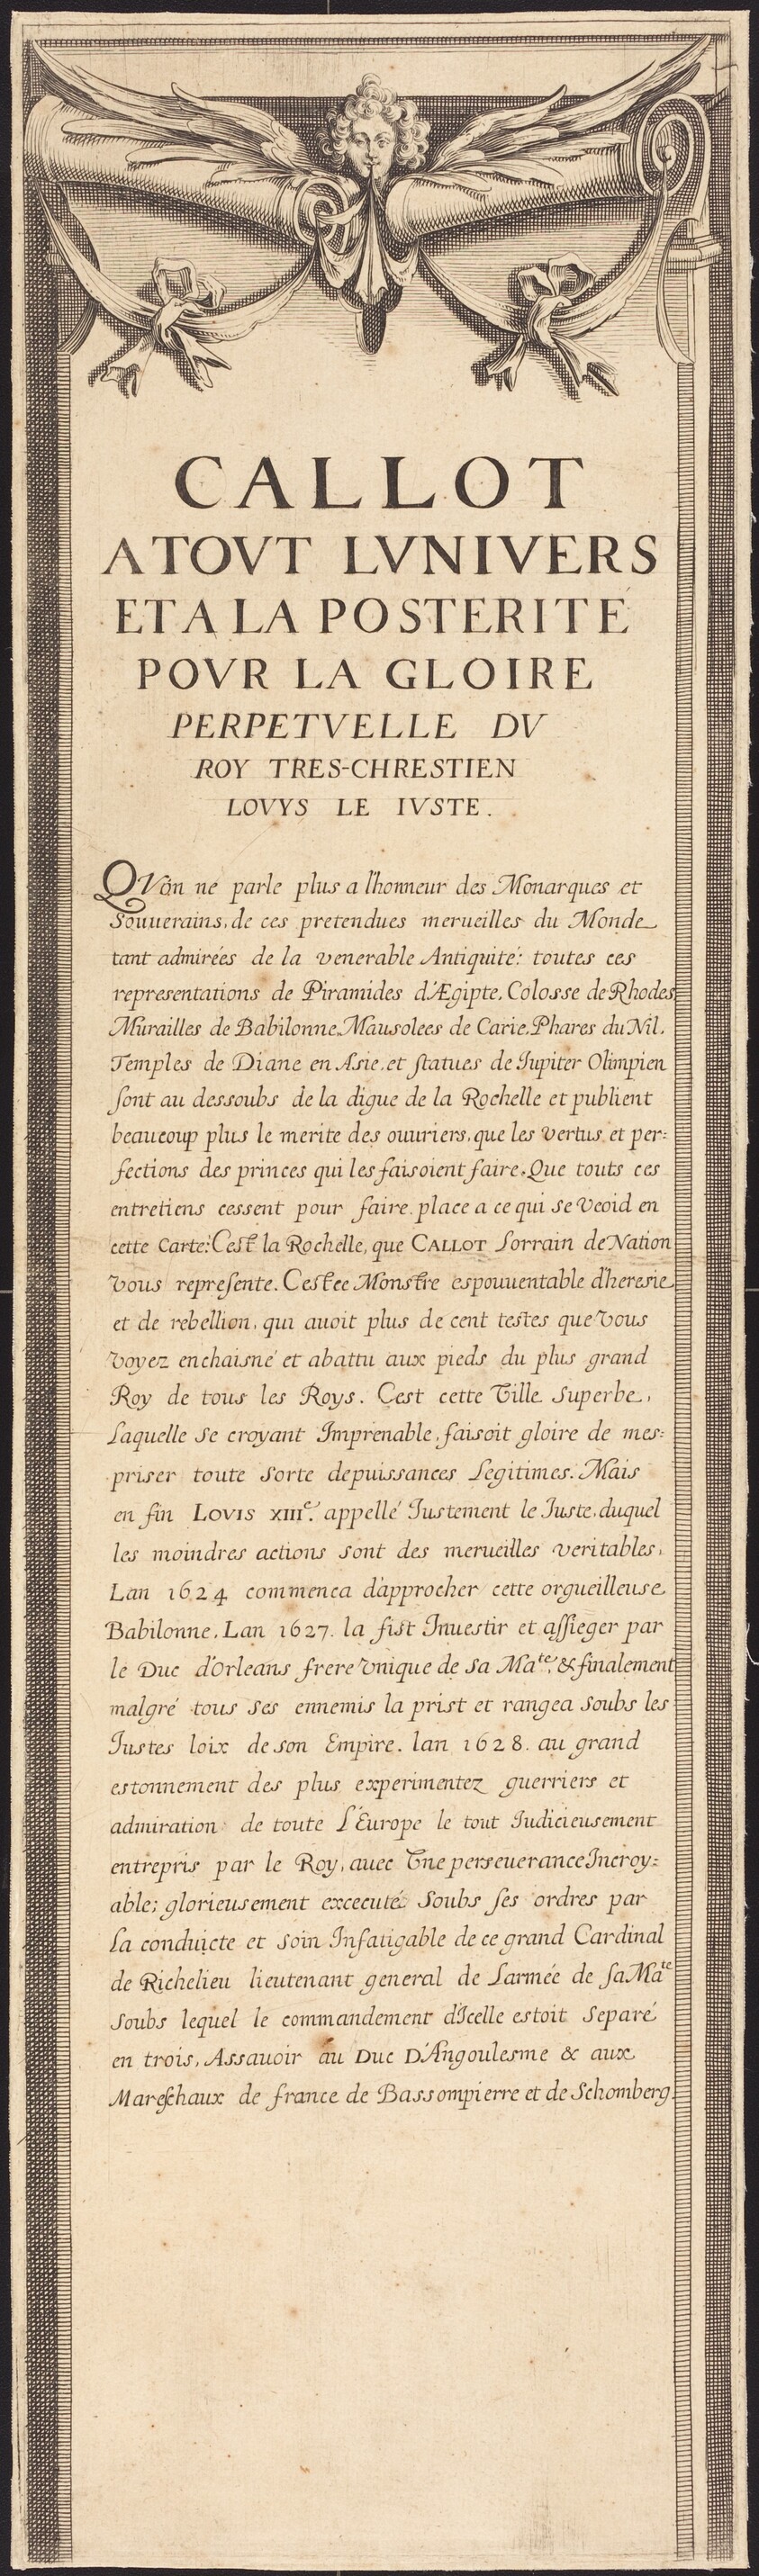 CALLOT
A TOVT LVNIVERS
ET A LA POSTERITÉ
POVR LA GLOIRE
PERPETVELLE DV
ROY TRES-CHRESTIEN
LOVYS LE IVSTE.
QVon ne parle plus a l'honneur des Monarques et
Souuerains, de ces pretendues merueilles du Monde
tant admirées de la venerable Antiquité: toutes ces
representations de Piramides d'Ægipte, Colosse de Rhodes,
Murailles de Babilonne, Mausolees de Carie, Phares du Nil,
Temples de Diane en Asie, et statues de Iupiter Olimpien
sont au dessoubs de la digue de la Rochelle et publient
beaucoup plus le merite des ouuriers, que les vertus et per=
fections des princes qui les faisoient faire. Que touts ces
entretiens cessent pour faire place a ce qui se veoid en
cette Carte: C'est la Rochelle, que CALLOT Lorrain de Nation
vous represente. C'est ce Monstre espouuentable d'heresie
et de rebellion, qui auoit plus de cent testes que vous
voyez enchaisné et abattu aux pieds du plus grand
Roy de tous les Roys. C'est cette Ville Superbe,
Laquelle se croyant Imprenable, faisoit gloire de mes=
priser toute sorte de puissances Legitimes. Mais
en fin LOVIS XIII.e appellé Iustement le Iuste, duquel
les moindres actions sont des merueilles veritables,
Lan 1624 commenca d'approcher cette orgueilleuse
Babilonne, Lan 1627. la fist Inuestir et assieger par
le Duc d'Orleans frere vnique de sa Mate, & finalement
malgré tous ses ennemis la prist et rangea soubs les
Iustes loix de son Empire. lan 1628. au grand
estonnement des plus experimentez guerriers et
admiration de toute L'Europe le tout Iudicieusement
entrepris par le Roy, auec Vne perseuerance Incroy=
able; glorieusement excecuté Soubs ses ordres par
La conduicte et soin Infatigable de ce grand Cardinal
de Richelieu lieutenant general de Larmée de sa Mate
soubs lequel le commandement d'Icelle estoit Separé
en trois, Assauoir au Duc D'Angoulesme & aux
Mareschaux de france de Bassompierre et de Schomberg.